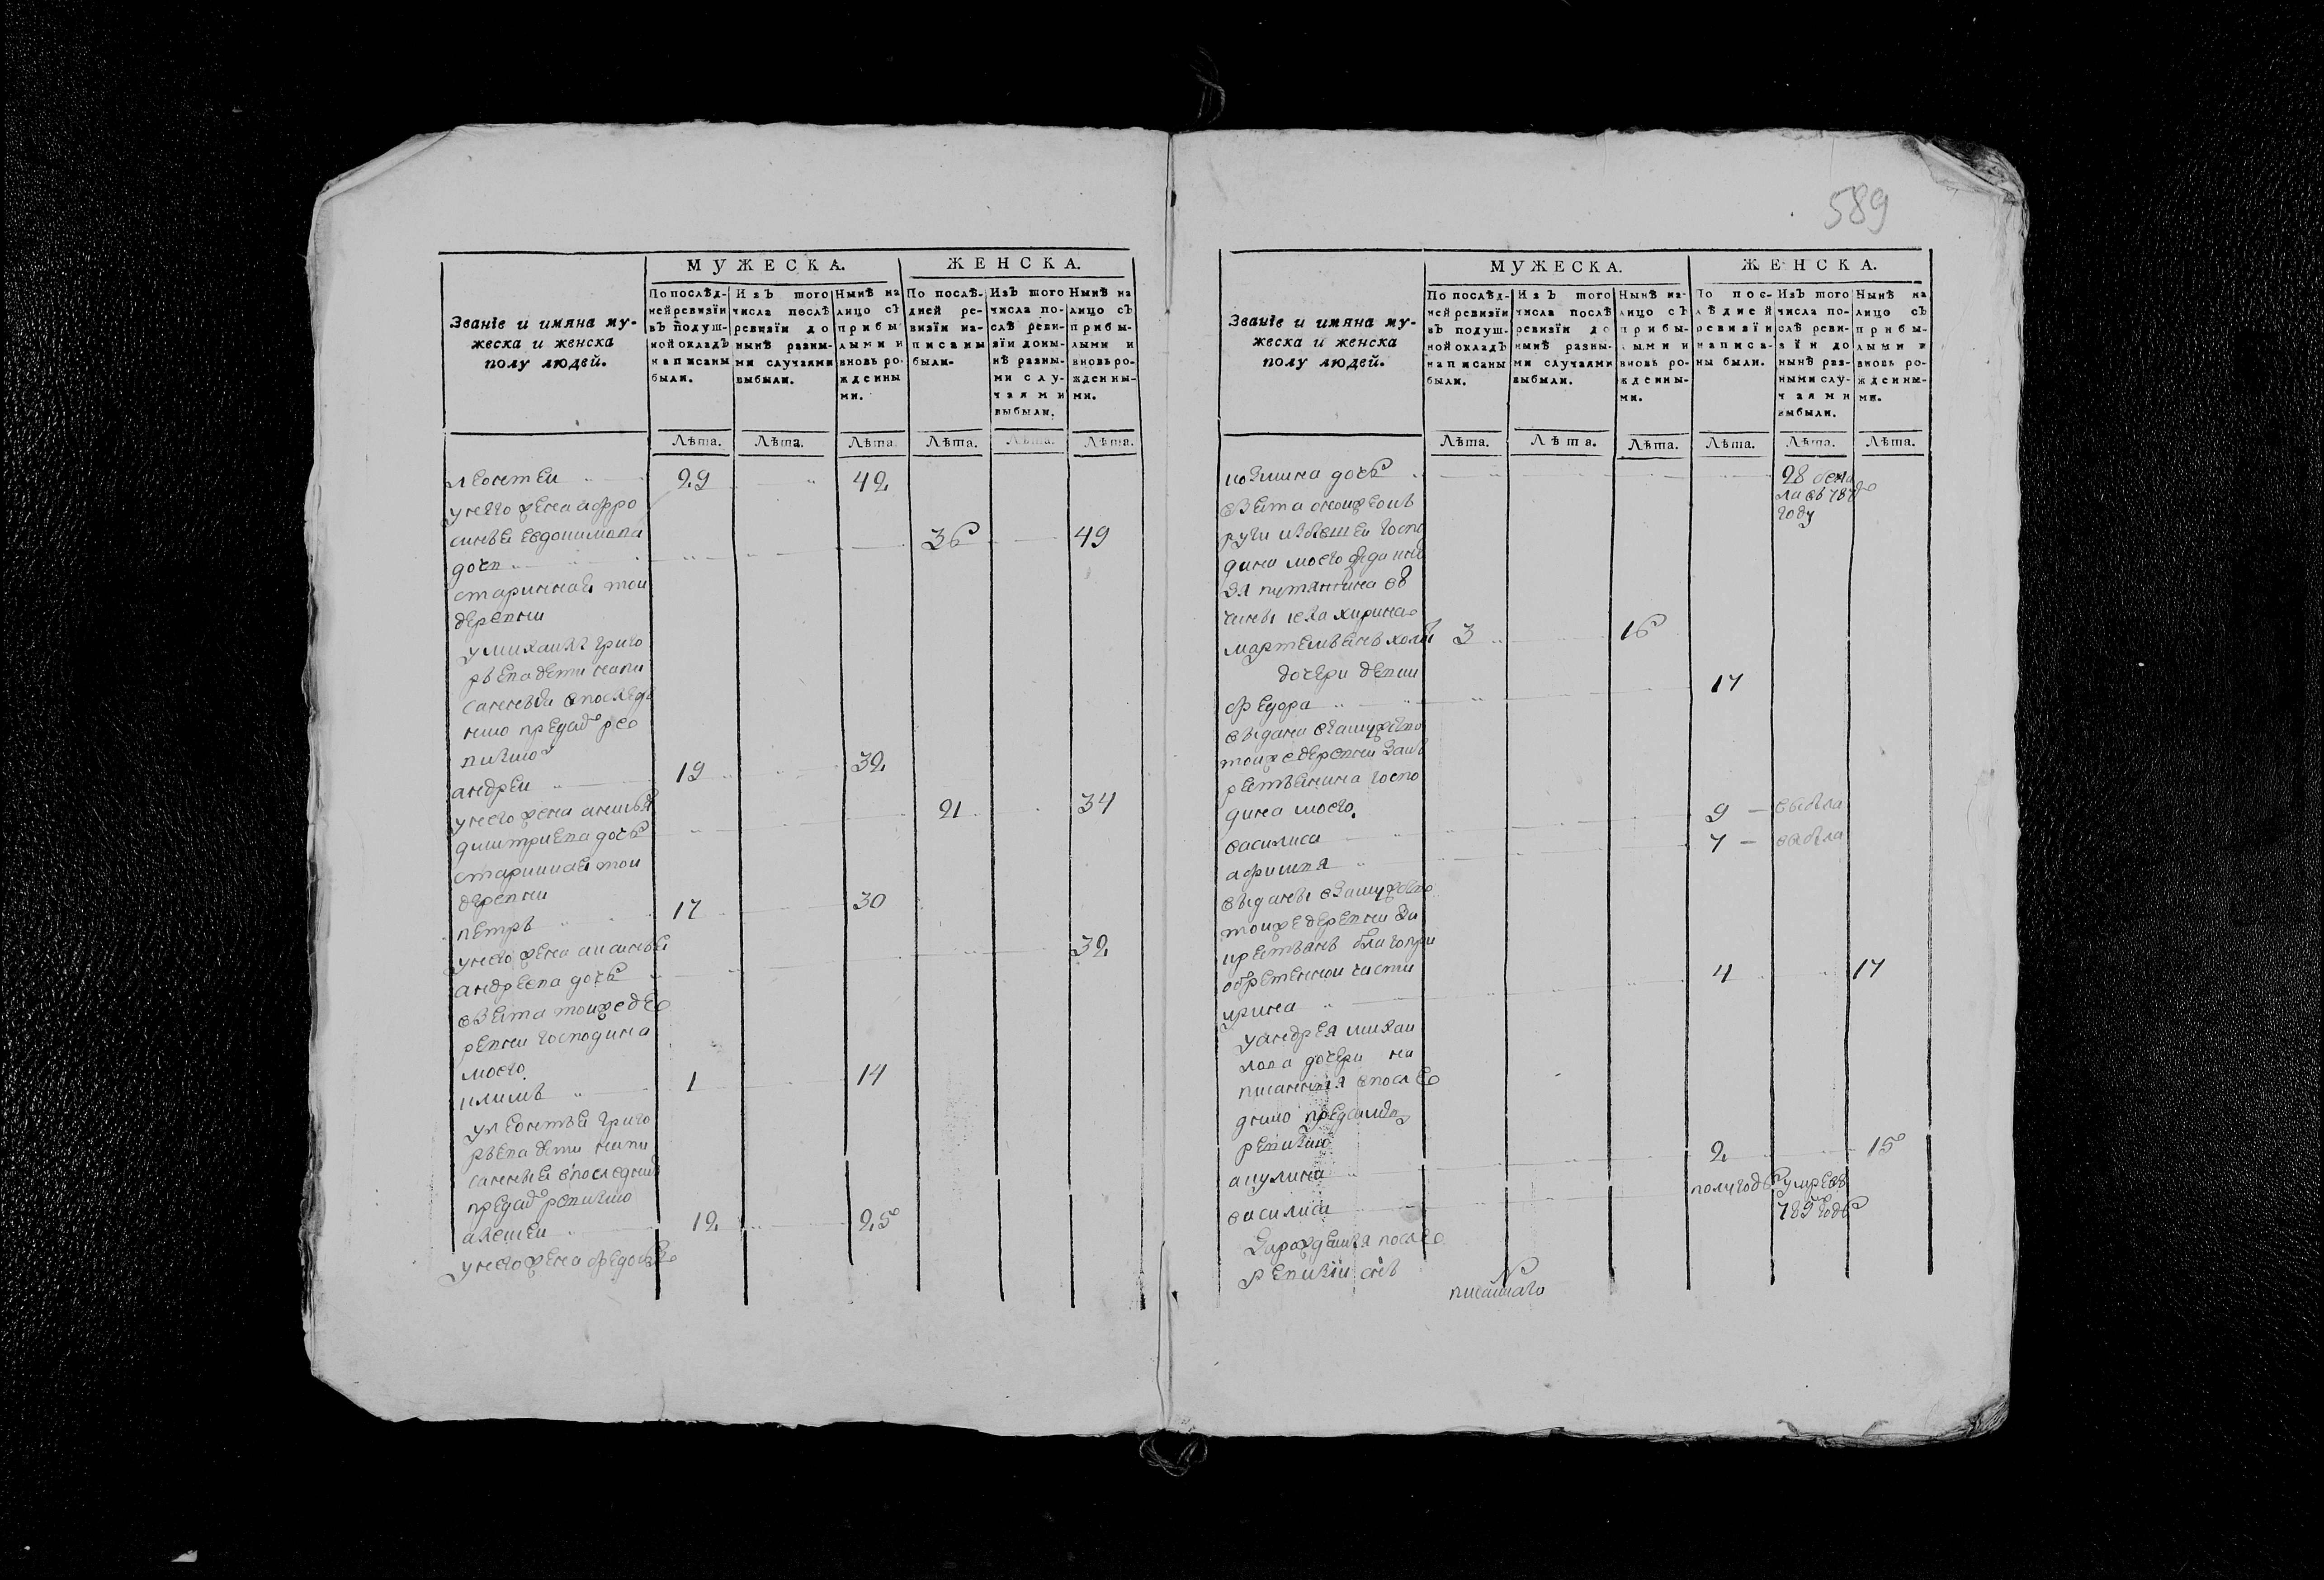 589
МУЖЕСКА.
ЖЕНСКА.
Званіе и имяна му-
жеска и женска
полу людей.
По послѣд-
ней ревизїи
въ подуш-
ной окладъ
написаны
были.
Изъ того
числа послѣ
ревизїи до
нынѣ разны-
ми случаями
выбыли.
Нынѣ на
лицо съ
прибы
лыми и
вновь ро-
жденны
ми.
По послѣ-
дней ре-
визїи на-
писаны
были.
Изъ того
числа по-
слѣ реви-
зїи доны-
нѣ разны-
ми слу-
чаями
выбыли.
Нынѣ на
лицо съ
прибы-
лыми и
вновь ро-
жденны-
ми.
Лѣта. Лѣта. Лѣта. Лѣта. Лѣта. Лѣта.
леонтеи 29 42
унего жена афро
синья евдокимова
дочь 36 49
стариннаѣ тои
деревни
умихаилѣ григо
рьева дети напи
санныи впоследъ
нию предъ рев
андреи 19 32
унего жена анисья
дмитриева дочь 21 34
стариннаѣ тои
деревни
петръ 17 30
унего жена
андреева дочь 32
взета тоижеде
ревни господина
моего
климъ 1 14
улеонтьѣ григо
рьева дети напи
санные впоследнию
предъ ревизию
алексеи 12 25
унего жена федосья
МУЖЕСКА.
ЖЕНСКА.
Званіе и имяна му-
жеска и женска
полу людей.
По послѣд-
ней ревизїи
въ подуш-
ной окладъ
написаны
были.
Изъ того
числа послѣ
ревизїи до
нынѣ разны-
ми случаями
выбыли.
Нынѣ на-
лицо съ
прибы-
лыми и
вновь ро-
жденны-
ми.
По пос-
лѣдней
ревизїи
написа-
ны были.
Изъ того
числа по-
слѣ реви-
зїи до
нынѣ раз-
ными слу-
чаями
выбыли.
Нынѣ на
лицо съ
прибы-
лыми и
вновь ро-
жденны-
ми.
Лѣта. Лѣта. Лѣта. Лѣта. Лѣта. Лѣта.
козмина дочь 28 бежа
ла въ 787
году
взята
госпо
дина моего
3 16
дочери девки
федора 17
выдана взамужѣство
тоиже деревни
госпо
дина моего.
василиса 9 — выбыла
афимья 7 — выбыла
выданы взамужство
тоиже деревни за
крестьянъ благопри
обретеннои части
ирина 4 17
уандрея михаи
лова дочери на
писанныя впосле
днию предсимъ
ревизию
акулина 2 15
василиса полугоду умре въ
789 году
Зарождения после
ревизіи снъ